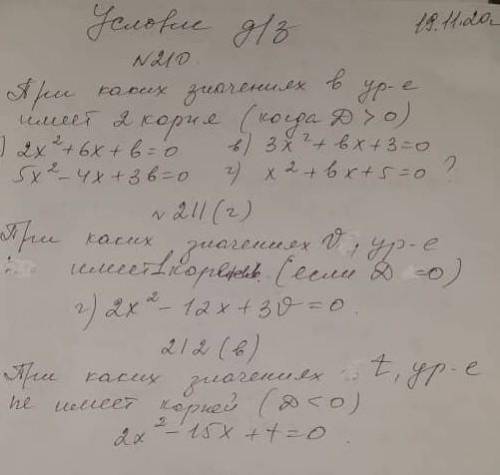 Условие д/з 19.11.20г
№210.
При каких значениях в ур-е
имеет 2 корня (когда D > 0)
) 2x² + 6x + в = 0 в) 3x² + вx + 3 = 0
5x² - 4x + 3в = 0 г) x² + вx + 5 = 0 ?
№ 211 (г)
При каких значениях v, ур-е
имеет 1 корень. (если D = 0)
г) 2x² - 12x + 3v = 0.
212 (в)
При каких значениях t, ур-е
не имеет корней (D < 0)
2x² - 15x + t = 0.